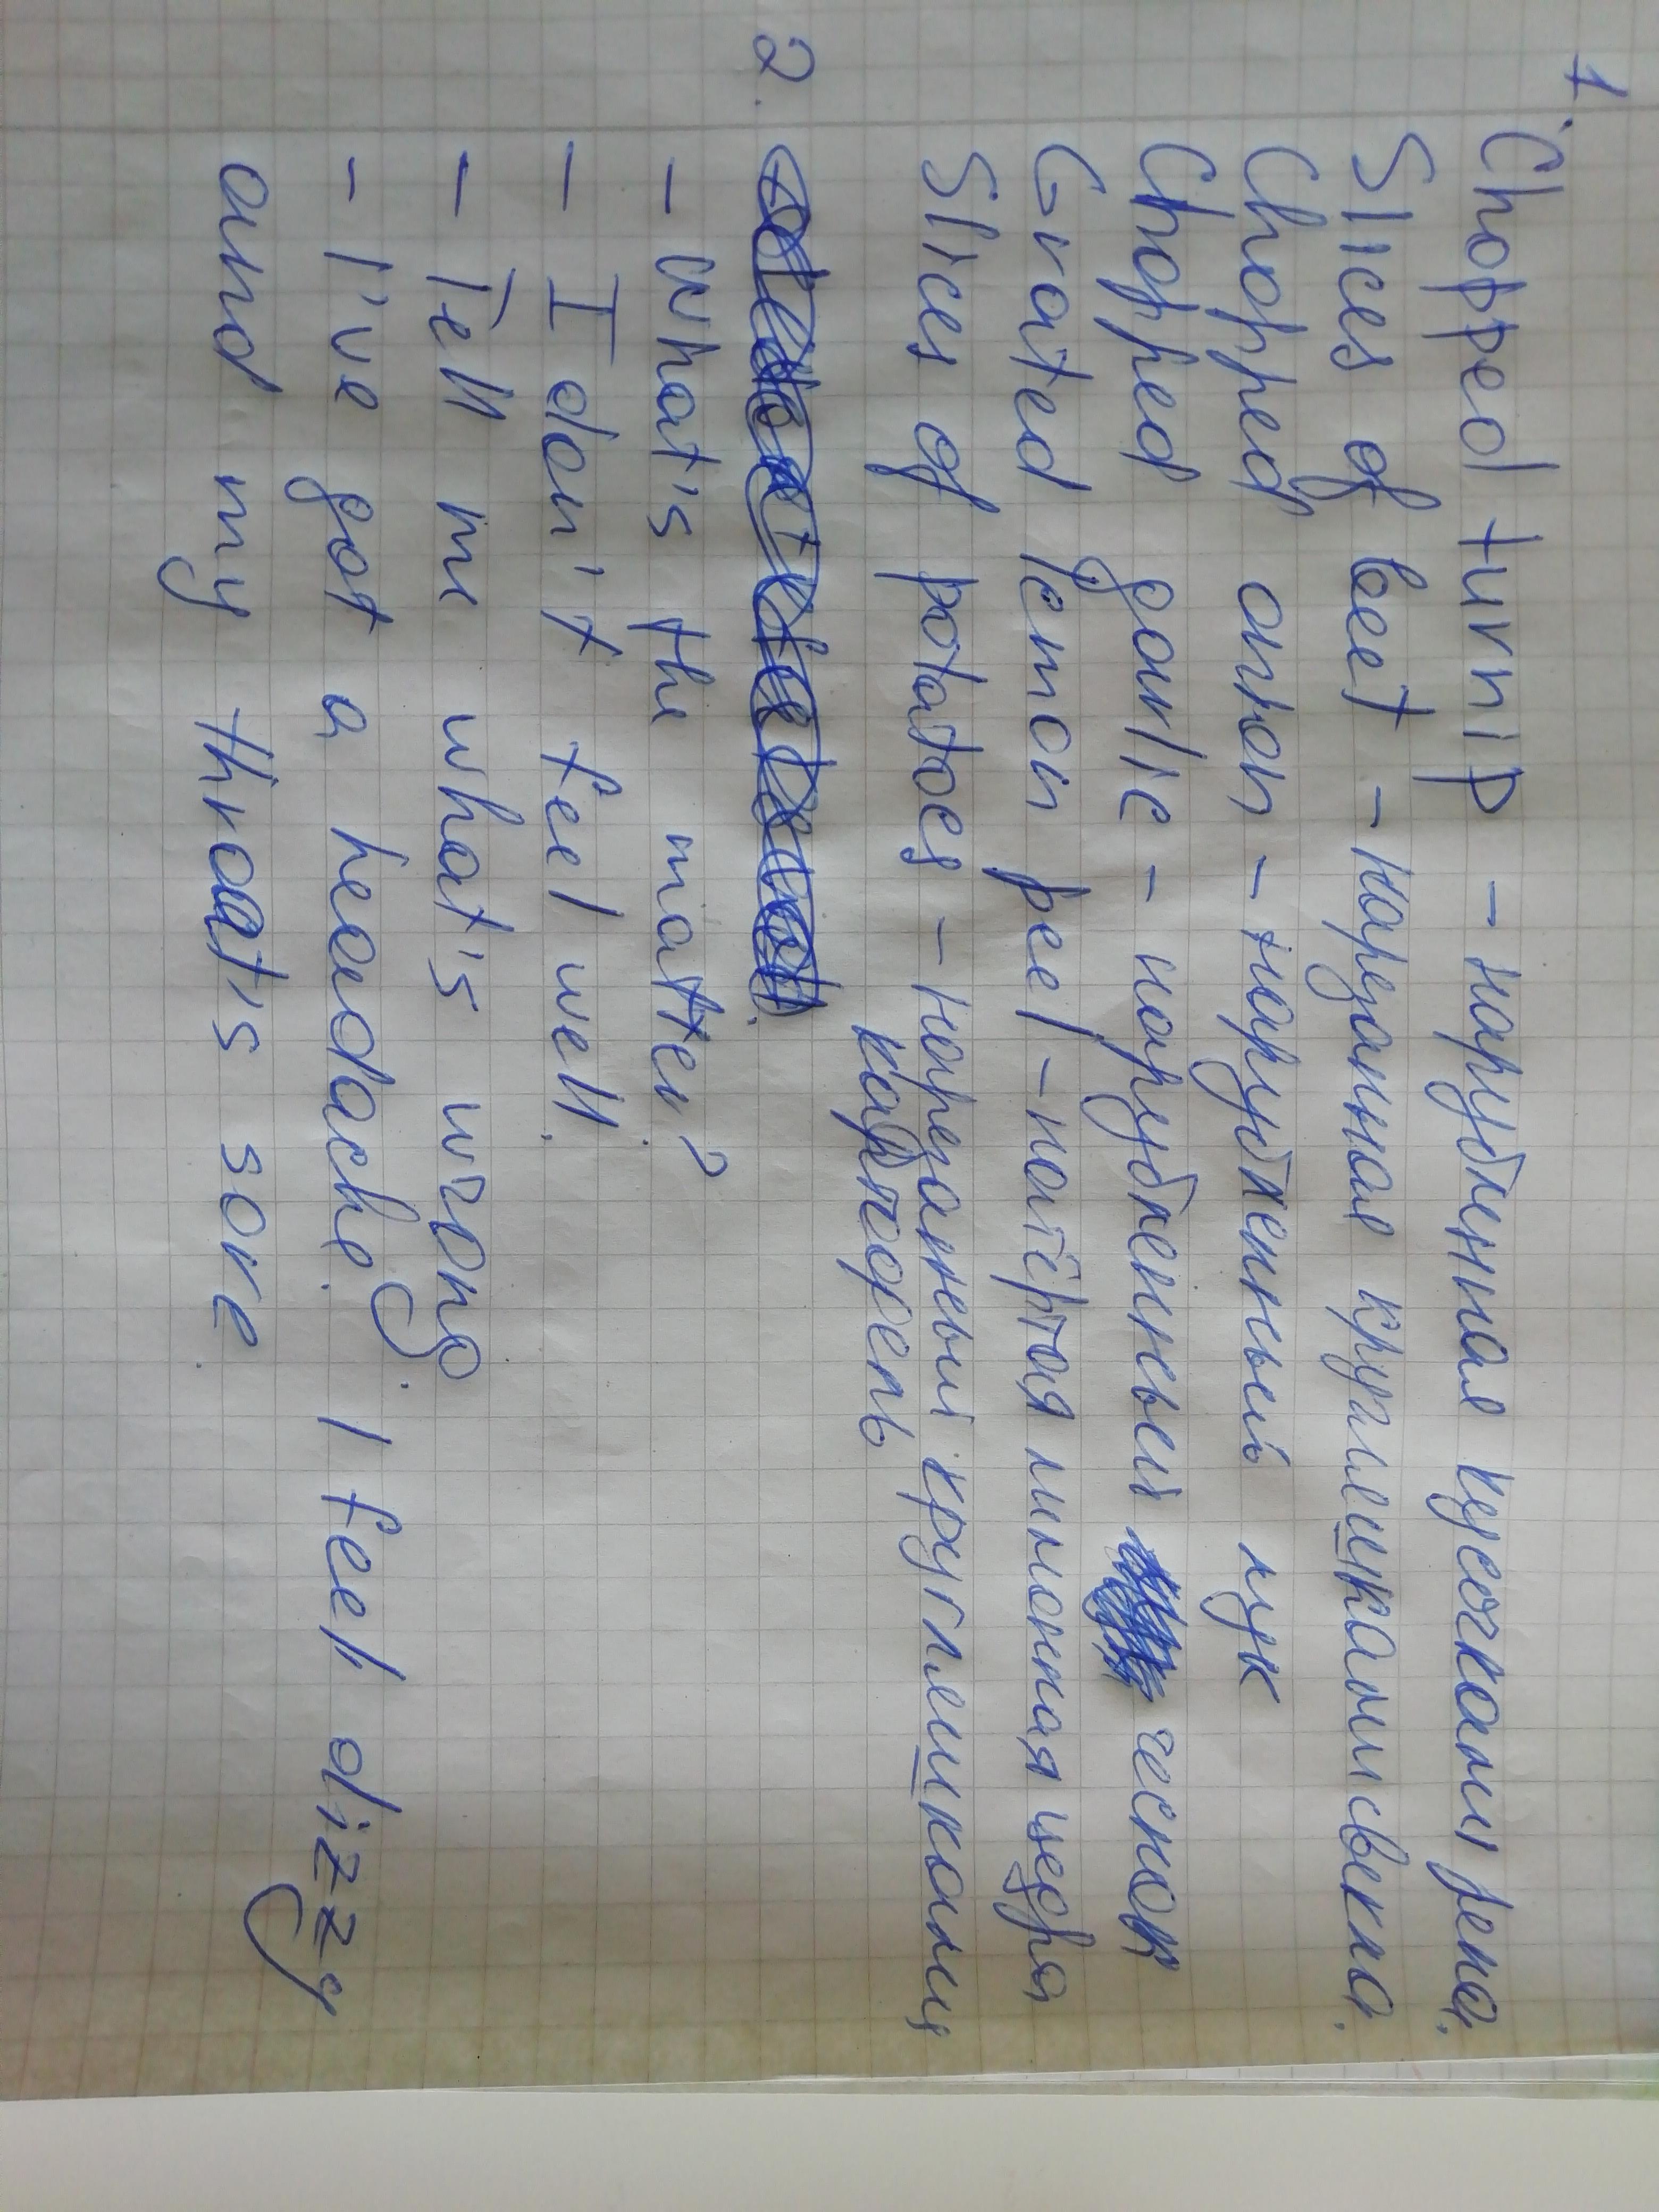 1. Chopped turnip - нарубленная кусочками репа.
Slices of beet - нарезанная круглешками свекла.
Chopped onion - нарубленный лук
Chopped garlic - нарубленный чеснок
Grated lemon peel - натёртая лимонная цедра
Slices of potatoes - нарезанный круглешками
картофель
2.
- What's the matter?
- I don't feel well.
- Tell me what's wrong.
- I've got a headache. I feel dizzy
and my throat's sore.